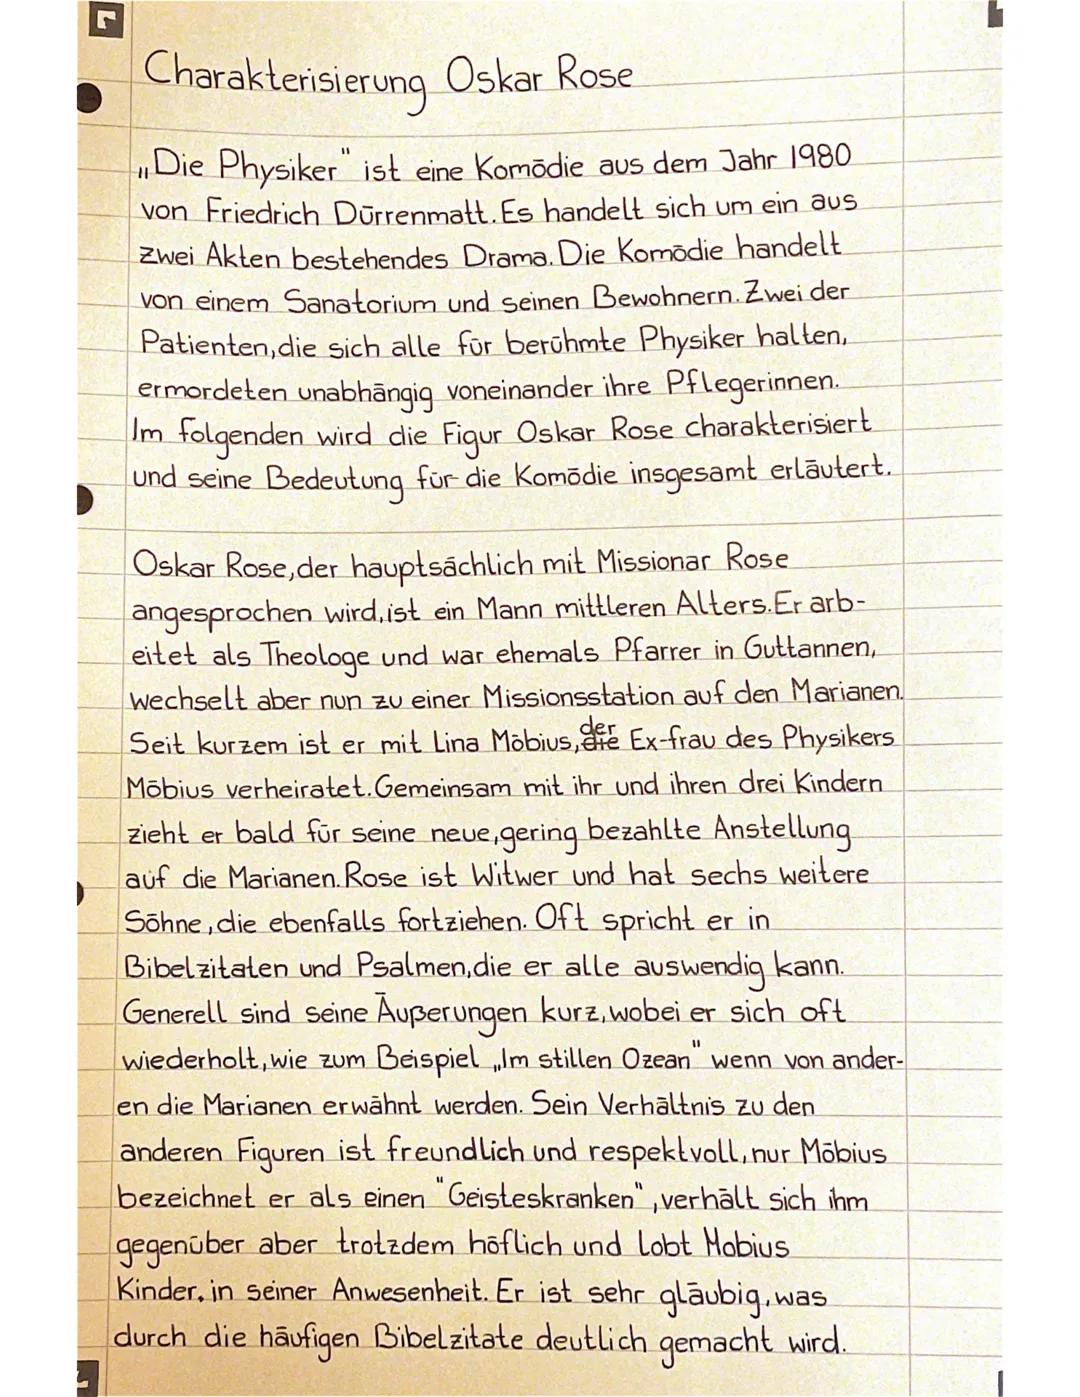 Charakterisierung Oskar Rose
„Die Physiker" ist eine Komödie aus dem Jahr 1980
von Friedrich Dürrenmatt. Es handelt sich um ein aus
zwei Akten bestehendes Drama. Die Komödie handelt
von einem Sanatorium und seinen Bewohnern. Zwei der
Patienten, die sich alle für berühmte Physiker halten,
ermordeten unabhängig voneinander ihre Pflegerinnen.
Im folgenden wird die Figur Oskar Rose charakterisiert
und seine Bedeutung für die Komödie insgesamt erläutert.
Oskar Rose, der hauptsächlich mit Missionar Rose
angesprochen wird, ist ein Mann mittleren Alters. Er arb-
eitet als Theologe und war ehemals Pfarrer in Guttannen,
wechselt aber nun zu einer Missionsstation auf den Marianen.
Seit kurzem ist er mit Lina Möbius, der Ex-frau des Physikers
Möbius verheiratet. Gemeinsam mit ihr und ihren drei Kindern
zieht er bald für seine neue, gering bezahlte Anstellung
auf die Marianen. Rose ist Witwer und hat sechs weitere
Söhne, die ebenfalls fortziehen. Oft spricht er in
Bibelzitaten und Psalmen, die er alle auswendig kann.
Generell sind seine Äußerungen kurz, wobei er sich oft
wiederholt, wie zum Beispiel „Im stillen Ozean" wenn von ander-
en die Marianen erwähnt werden. Sein Verhältnis zu den
anderen Figuren ist freundlich und respektvoll, nur Möbius
bezeichnet er als einen "Geisteskranken", verhält sich ihm
gegenüber aber trotzdem höflich und lobt Mobius
Kinder, in seiner Anwesenheit. Er ist sehr gläubig, was
durch die häufigen Bibelzitate deutlich gemacht wird.